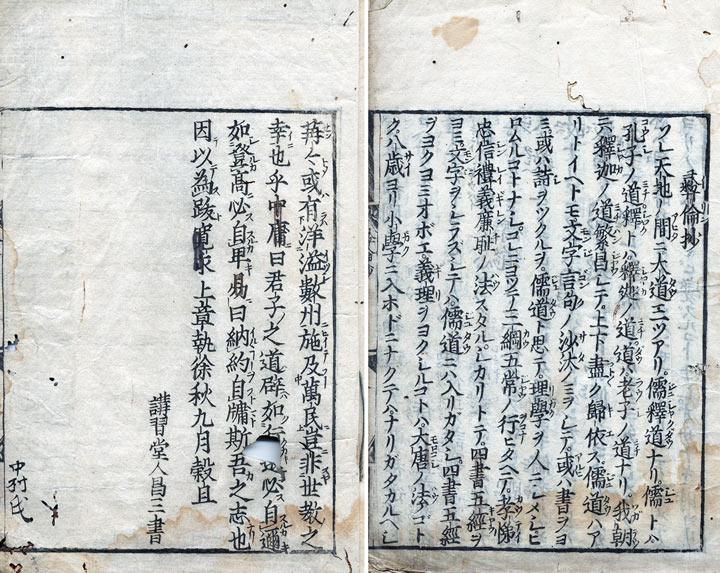 彝倫抄
ソレ天地ノ間ニ大道三ツアリ。儒釋道ナリ。儒トハ
孔子ノ道釋トハ釋迦ノ道道トハ老子ノ道ナリ。我朝
ニハ釋迦ノ道繁昌シテ。上下盡ク歸依ス。儒道ハア
リトイヘトモ。文字言句ノ沙汰ニヲシテ。或ハ書ヲヨ
ミ或ハ詩ヲツクルヲ。儒道ト思テ。理學ヲ人ニシメシヒ
ロムルコトナシ。コレニヨツテ三綱五常ノ行ヒタヘテ。孝悌
忠信禮義廉耻ノ法スタル。シカリトテ。四書五經ヲ
ヨミ文字ヲシラズシテハ儒道ニハ入リガタシ。四書五經
ヲヨクヨミオボエ。義理ヲヨクシルコトハ。大唐ノ法ノゴト
ク。八歳ヨリ小學ニ入ホドニナクテハナリガタカルヘシ
蒋々或有洋溢數州施及萬民豈非世教之
幸也乎中庸曰君子之道辟如行必自邇
如登高必自卑易曰納約自牖斯吾之志也
因以為跋寛永上章執徐秋九月穀旦
講習堂人昌三書
中村氏